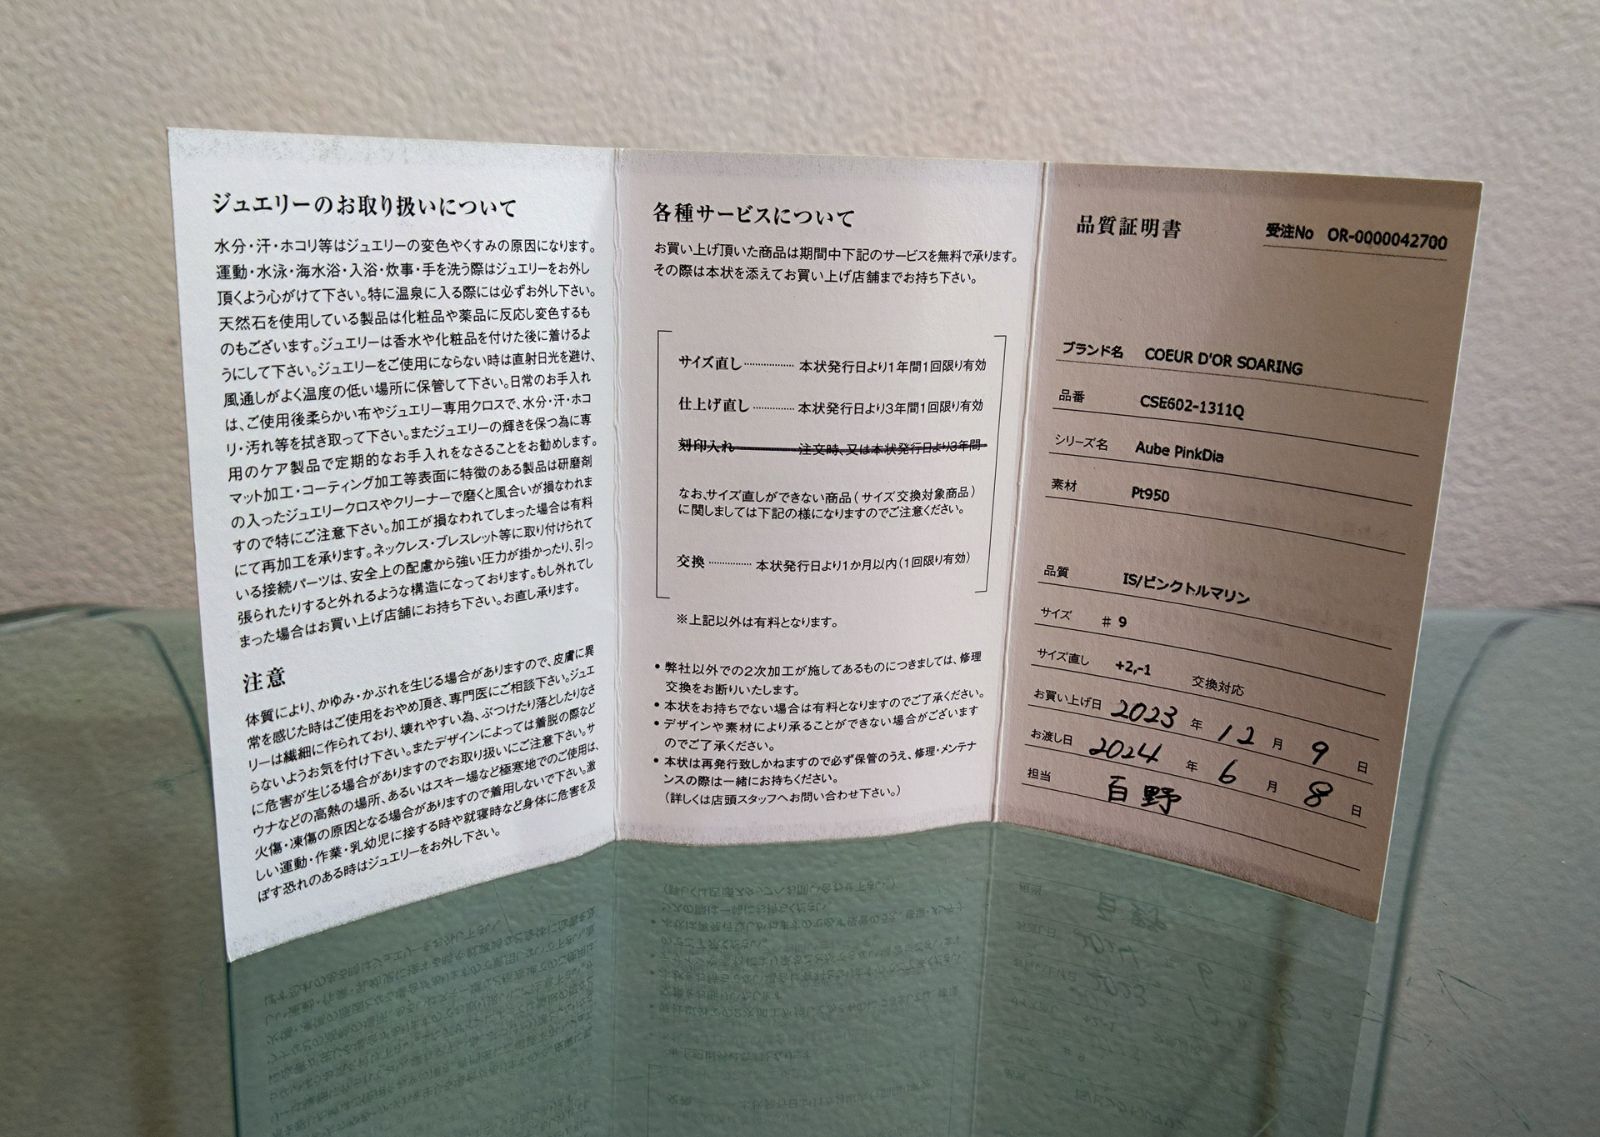 ジュエリーのお取り扱いについて
水分・汗・ホコリ等はジュエリーの変色やくすみの原因になります。
運動・水泳・海水浴・入浴・炊事・手を洗う際はジュエリーをお外し
頂くよう心がけて下さい。特に温泉に入る際には必ずお外し下さい。
天然石を使用している製品は化粧品や薬品に反応し変色するも
のもございます。ジュエリーは香水や化粧品を付けた後に着けるよ
うにして下さい。ジュエリーをご使用にならない時は直射日光を避け、
風通しがよく温度の低い場所に保管して下さい。日常のお手入れ
は、ご使用後柔らかい布やジュエリー専用クロスで、水分・汗・ホコ
リ・汚れ等を拭き取って下さい。またジュエリーの輝きを保つ為に専
用のケア製品で定期的なお手入れをなさることをお勧めします。
マット加工・コーティング加工等表面に特徴のある製品は研磨剤
の入ったジュエリークロスやクリーナーで磨くと風合いが損なわれま
すので特にご注意下さい。加工が損なわれてしまった場合は有料
にて再加工を承ります。ネックレス・ブレスレット等に取り付けられて
いる接続パーツは、安全上の配慮から強い圧力が掛かったり、引っ
張られたりすると外れるような構造になっております。もし外れてし
まった場合はお買い上げ店舗にお持ち下さい。お直し承ります。
注意
体質により、かゆみ・かぶれを生じる場合がありますので、皮膚に異
常を感じた時はご使用をおやめ頂き、専門医にご相談下さい。ジュエ
リーは繊細に作られており、壊れやすい為、ぶつけたり落としたりなさ
らないようお気を付け下さい。またデザインによっては着脱の際など
に危害が生じる場合がありますのでお取り扱いにご注意下さい。サ
ウナなどの高熱の場所、あるいはスキー場など極寒地でのご使用は、
火傷・凍傷の原因となる場合がありますので着用しないで下さい。激
しい運動・作業・乳幼児に接する時や就寝時など身体に危害を及
ぼす恐れのある時はジュエリーをお外し下さい。
各種サービスについて
お買い上げ頂いた商品は期間中下記のサービスを無料で承ります。
その際は本状を添えてお買い上げ店舗までお持ち下さい。
サイズ直し…………… 本状発行日より1年間1回限り有効
仕上げ直し………… 本状発行日より3年間1回限り有効
刻印入れ 注文時、又は本状発行日より3年間
なお、サイズ直しができない商品（サイズ交換対象商品）
に関しましては下記の様になりますのでご注意ください。
交換 ………… 本状発行日より1か月以内（1回限り有効）
※上記以外は有料となります。
• 弊社以外での2次加工が施してあるものにつきましては、修理
交換をお断りいたします。
• 本状をお持ちでない場合は有料となりますのでご了承ください。
• デザインや素材により承ることができない場合がございます
のでご了承ください。
• 本状は再発行致しかねますので必ず保管のうえ、修理・メンテナ
ンスの際は一緒にお持ちください。
（詳しくは店頭スタッフへお問い合わせ下さい。）
品質証明書 受注No OR-0000042700
ブランド名 COEUR D'OR SOARING
品番 CSE602-1311Q
シリーズ名 Aube PinkDia
素材 Pt950
品質 IS/ピンクトルマリン
サイズ # 9
サイズ直し +2,-1 交換対応
お買い上げ日 2023 年 12 月 9 日
お渡し日 2024 年 6 月 8 日
担当 百野